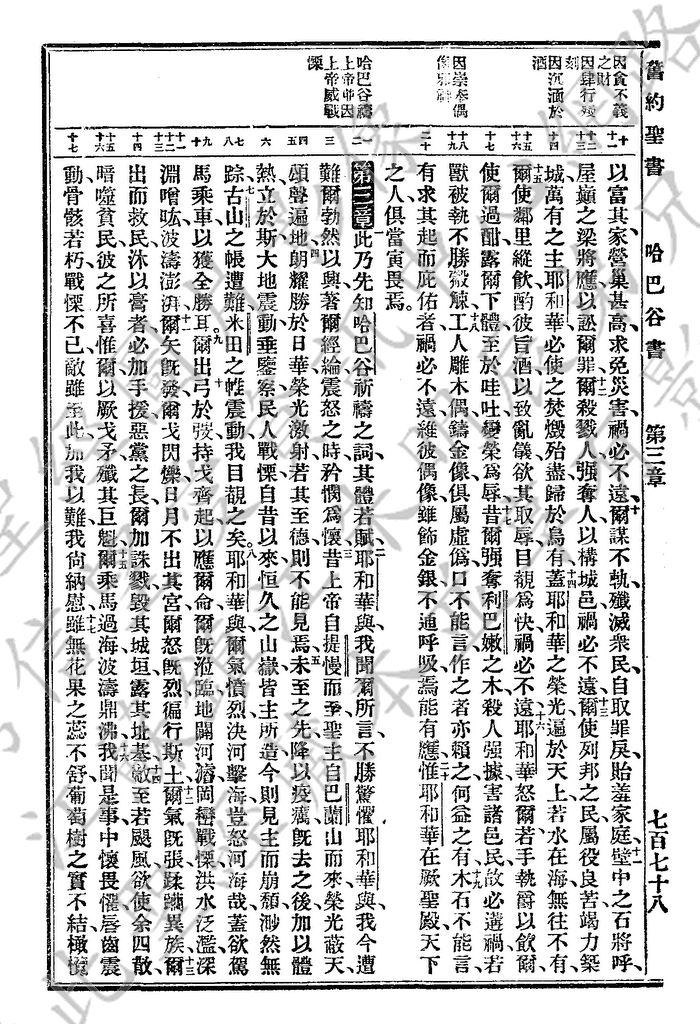 舊約聖書 哈巴谷書 第三章 七百七十八
因貪不義之財
因肆行殘刻
因沉湎於酒
因崇奉偶像邪神
哈巴谷禱上帝而因上帝威戰慄
以富其家營巢甚高求免災害禍必不遠爾謀不軌殲滅衆民自取罪戾貽羞家庭壁中之石將呼
屋巔之梁將應以訟爾罪爾殺戮人强奪人以構城邑禍必不遠爾使列邦之民屬役良苦竭力築
城萬有之主耶和華必使之焚燬殆盡歸於烏有蓋耶和華之榮光遍於天上若水在海無往不有
爾使鄰里縱飲酌彼旨酒以致亂儀欲其取辱目覩爲快禍必不遠耶和華怒爾若手執爵以飲爾
使爾過酣露爾下體至於哇吐變榮爲辱昔爾强奪利巴嫩之木殺人强據害諸邑民故必遘禍若
獸被執不勝觳觫工人雕木偶鑄金像俱屬虛僞口不能言作之者亦賴之何益之有木石不能言
有求其起而庇佑者禍必不遠維彼偶像雖飾金銀不通呼吸焉能有應惟耶和華在厥聖殿天下
之人俱當寅畏焉
第三章 此乃先知哈巴谷祈禱之詞其體若賦耶和華與我聞爾所言不勝驚懼耶和華與我今遭
難爾勃然以興著爾經綸震怒之時矜憫爲懷昔上帝自提慢而至聖主自巴蘭山而來榮光蔽天
頌聲遍地朗耀勝於日華榮光激射若其至德則不能見焉未至之先降以疫癘旣去之後加以體
熱立於斯大地震動垂鑒察民人戰慄自昔以來恒久之山嶽皆主所造今則見主而崩頹渺然無
踪古山之帳遭難米田之帷震動我目覩之矣耶和華與爾氣憤烈決河擊海豈怒河海哉蓋欲駕
馬乘車以獲全勝耳爾出弓於弢持戈齊起以應爾命爾旣涖臨地闢河濬岡巒戰慄洪水泛濫深
淵噌吰波濤澎湃爾矢旣發爾戈閃爍日月不出其宮爾怒旣烈徧行斯土爾氣旣張蹂躪異族爾
出而救民沐以膏者必加手援惡黨之長爾加誅戮毀其城垣露其址基敵至若颶風欲使余四散
暗噬貧民彼之所喜惟爾以厥戈矛殲其巨魁爾乘馬過海波濤鼎沸我聞是事中懷畏懼唇齒震
動骨骸若朽戰慄不已敵雖至此加我以難我尙納慰雖無花果之蕊不舒葡萄樹之實不結橄欖